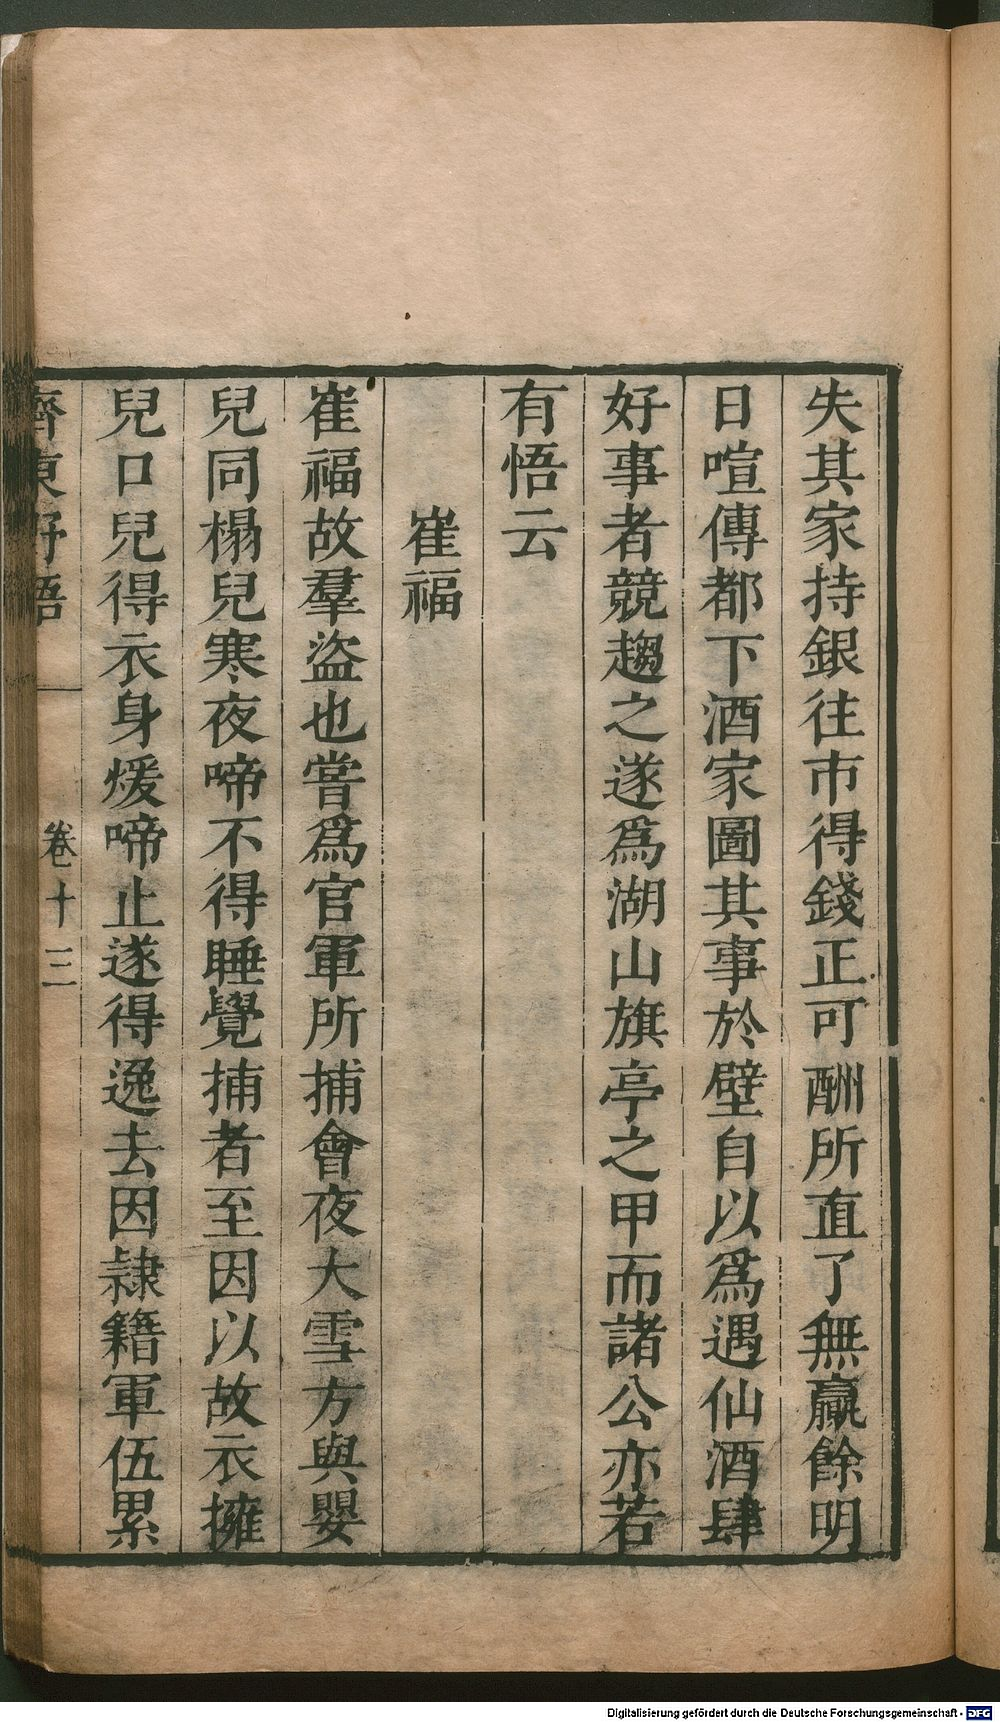 失其家持銀往市得錢正可酬所直了無贏餘明
日喧傳都下酒家圖其事於壁自以爲遇仙酒肆
好事者競趨之遂爲湖山旗亭之甲而諸公亦若
有悟云
崔福
崔福故羣盜也嘗爲官軍所捕會夜大雪方與嬰
兒同榻兒寒夜啼不得睡覺捕者至因以故衣擁
兒口兒得衣身煖啼止遂得逸去因隷籍軍伍累
齊東野語
卷十三
Digitalisierung gefördert durch die Deutsche Forschungsgemeinschaft - DFG